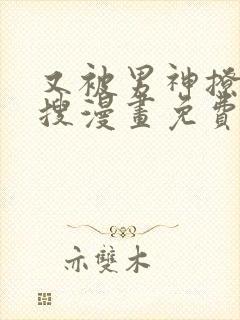 又被男神撩
搜漫畫免費
亦雙木